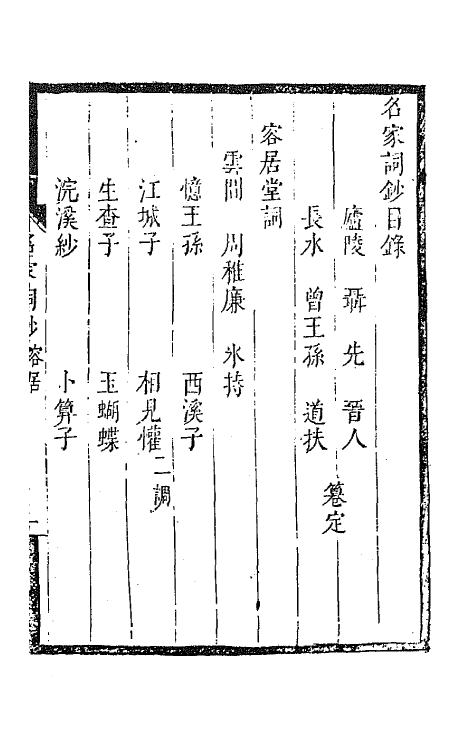 名家詞鈔目錄
廬陵　聶先　晉人
長水　曾王孫　道扶
篹定
容居堂詞
雲間　周稚廉　氷持
憶王孫　西溪子
江城子　相見懽二調
生查子　玉蝴蝶
浣溪紗　卜算子
名家詞鈔　容居